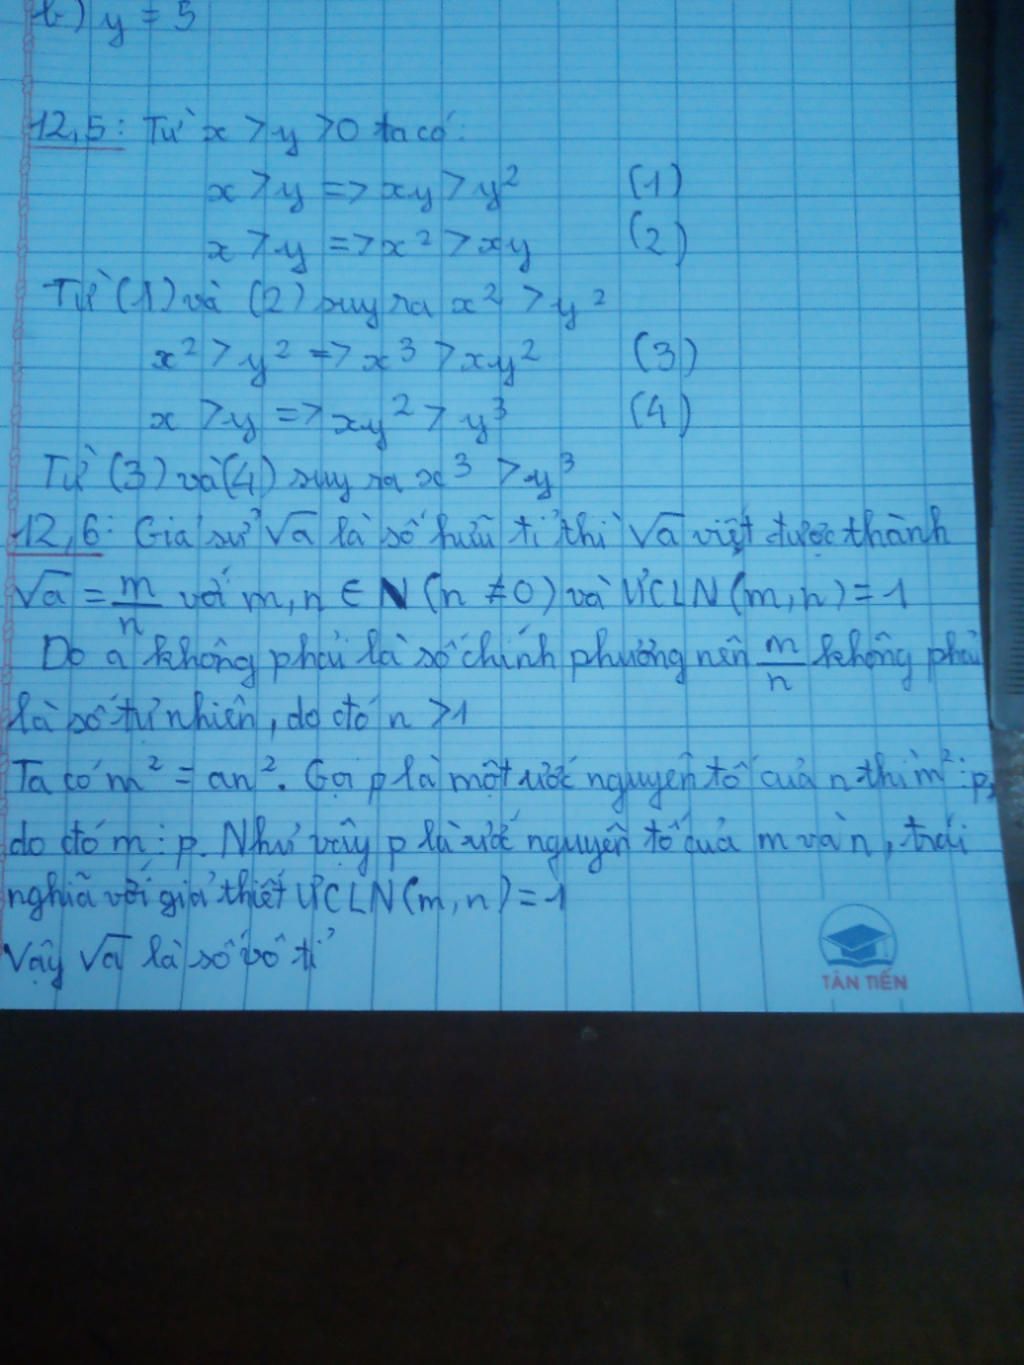 b) y = 5
12,5: Từ x > y > 0 ta có:
x > y => xy > y² (1)
x > y => x² > xy (2)
Từ (1) và (2) suy ra x² > y²
x² > y² => x³ > xy² (3)
x > y => xy² > y³ (4)
Từ (3) và (4) suy ra x³ > y³
12,6: Giả sử √a là số hữu tỉ thì √a viết được thành
√a = m/n với m, n ∈ N (n ≠ 0) và ƯCLN(m, n) = 1
Do a không phải là số chính phương nên m/n không phải
là số tự nhiên, do đó n > 1
Ta có m² = an². Gọi p là một ước nguyên tố của n thì m² ⋮ p,
do đó m ⋮ p. Như vậy p là ước nguyên tố của m và n, trái
nghĩa với giả thiết ƯCLN(m, n) = 1
Vậy √a là số vô tỉ
TÂN TIẾN